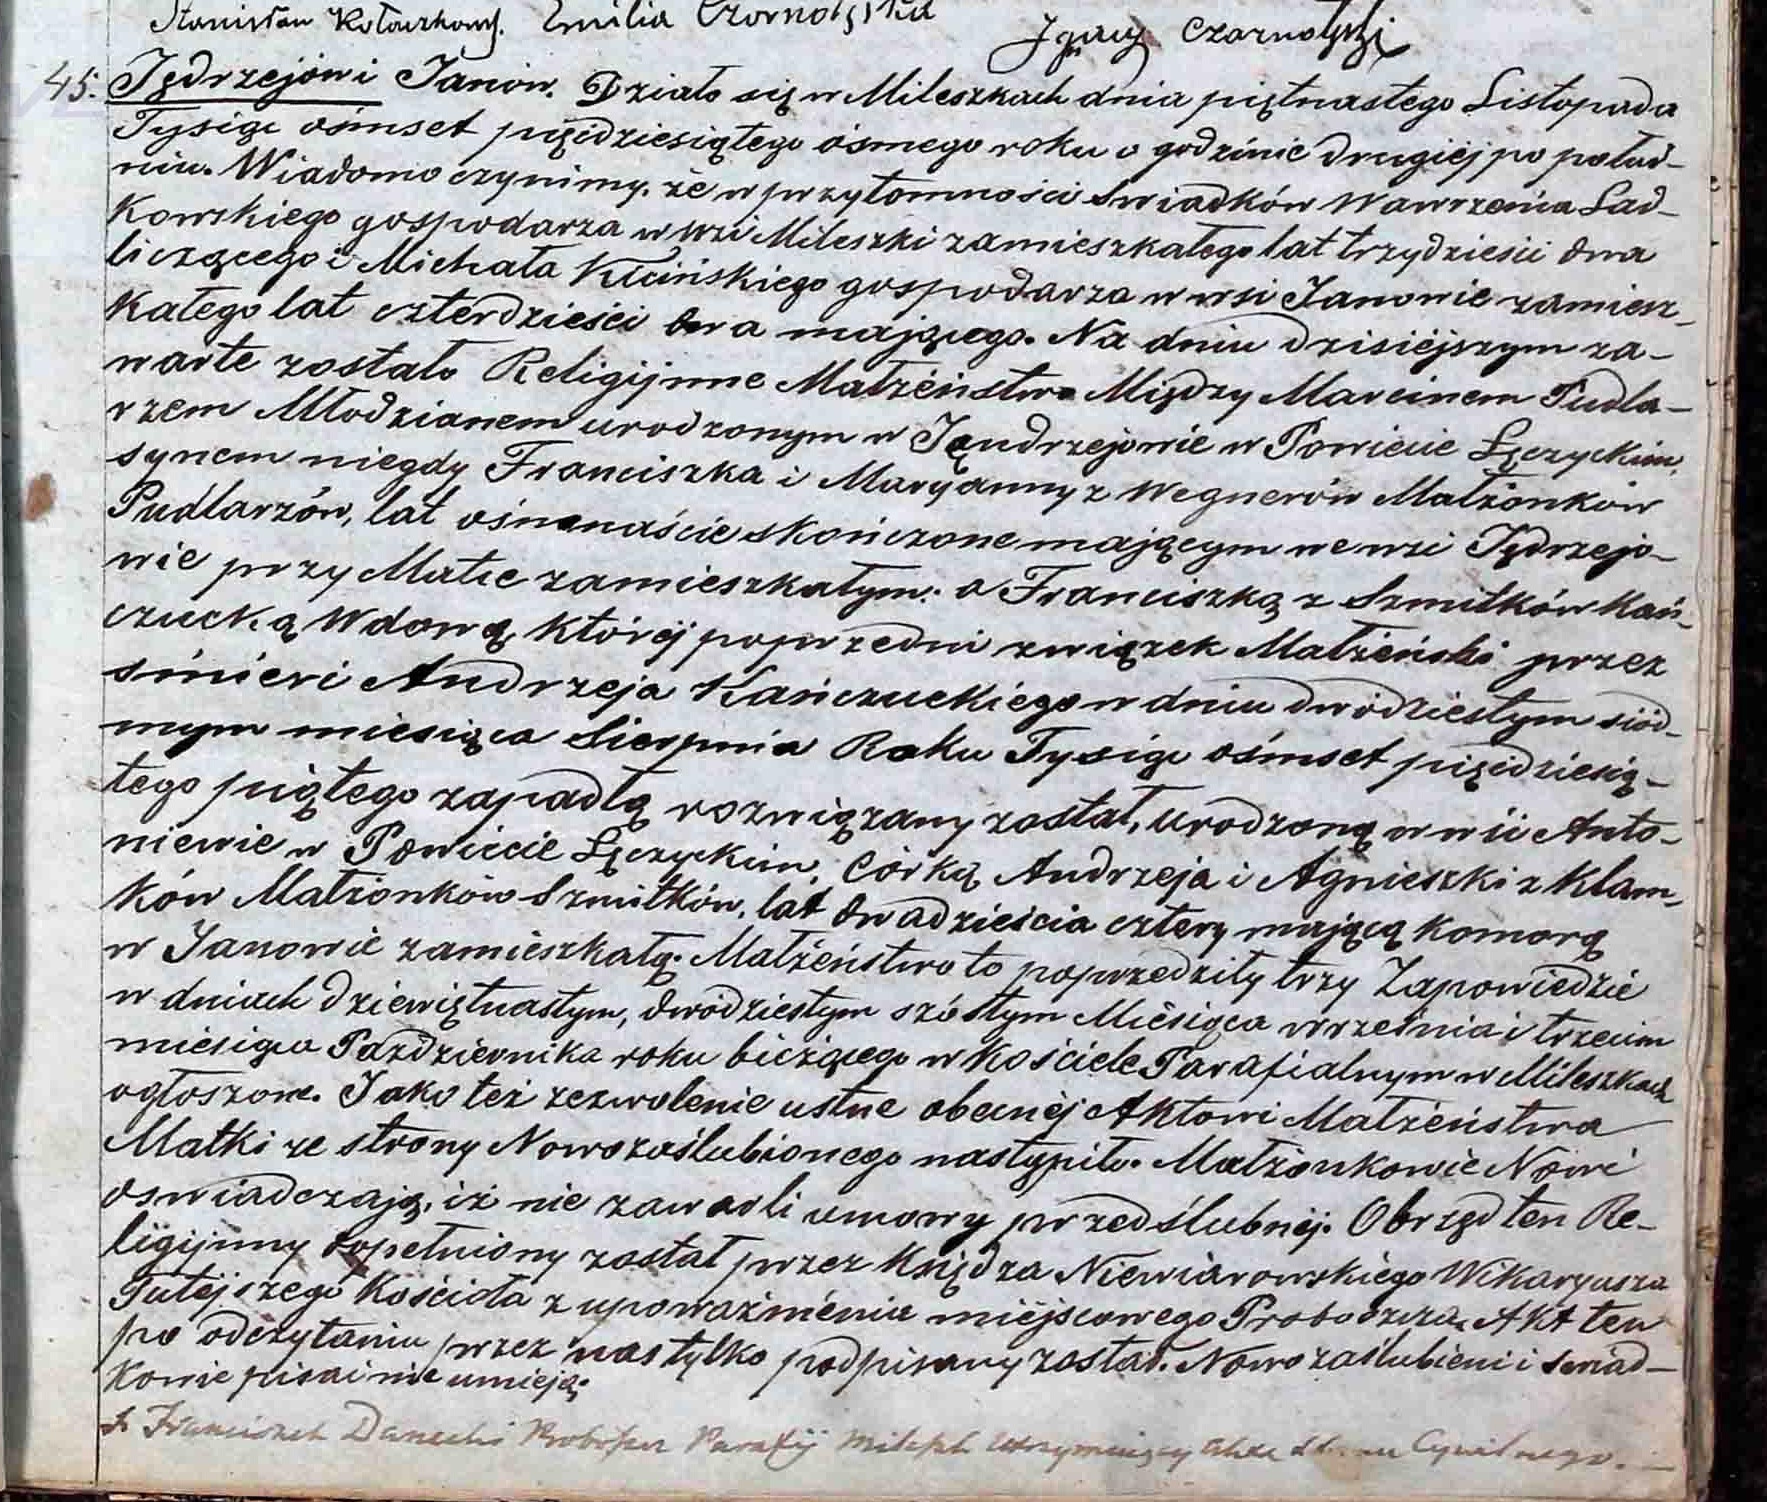 Stanisław Kołaczkows. Emilia Czarnolyska Ignacy Czarnolyski
45. Jędrzejów i Janów. Działo się w Mileszkach dnia piętnastego Listopada
Tysiąc ośmset pięćdziesiątego ósmego roku o godzinie drugiej po połud-
niu. Wiadomo czynimy, że w przytomności Swiadków Wawrzeńca Sad-
kowskiego gospodarza w wsi Mileszki zamieszkałego lat trzydzieści dwa
liczącego i Michała Kucińskiego gospodarza w wsi Janowie zamiesz-
kałego lat czterdzieści dwa mającego. Na dniu dzisiejszym za-
warte zostało Religijnne Małżeństwo Między Marcinem Pudla-
rzem Młodzianem urodzonym w Jęndrzejowie w Powiecie Łęczyckim,
synem niegdy Franciszka i Maryanny z Wegnerów Małżonków
Pudlarzów, lat ośmnaście skończone mającym we wsi Jędrzejo-
wie przy Matce zamieszkałym: a Franciszką z Szmitków Kań-
czucką Wdową, której poprzedni związek Małżeński przez
śmierć Andrzeja Kańczuckiego w dniu dwódziestym siód-
mym miesiąca Sierpnia Roku Tysiąc ośmset pięćdziesią-
tego piątego zapadłą rozwiązany został, urodzoną w wsi Anto-
niewie w Powiecie Łęczyckim, Córką Andrzeja i Agnieszki z Klam-
ków Małżonków Szmitków, lat dwadzieścia cztery mającą Komorą
w Janowie zamieszkałą. Małżeństwo to poprzedziły trzy Zapowiedzie
w dniach dziewiętnastym, dwódziestym szóstym Miesiąca września i trzecim
miesiąca Października roku bieżącego w Kościele Parafialnym w Mileszkach
ogłoszone. Jako też zezwolenie ustne obecnéj Aktowi Małżeństwa
Matki ze strony Nowozaślubionego nastąpiło. Małżonkowie Nowi
oswiadczają, iż nie zawarli umowy przedślubnéj. Obrzęd ten Re-
ligijnny dopełniony został przez Księdza Niewiarowskiego Wikaryusza
Tutejszego Kościoła z upoważnienia miejscowego Proboszcza. Akt ten
po odczytaniu przez nas tylko podpisany został. Nowozaślubieni i swiad-
kowie pisać nie umieją.
X Franciszek Danecki Proboszcz Parafij Mileszk Utrzymujący Akta Stanu Cywilnego.